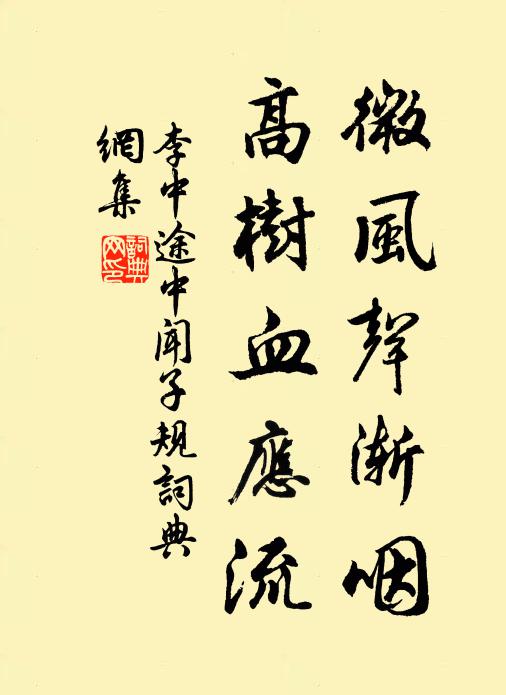 微風聲漸咽
高樹血應流
李中途中聞子規詞典
網集
詞典
网印